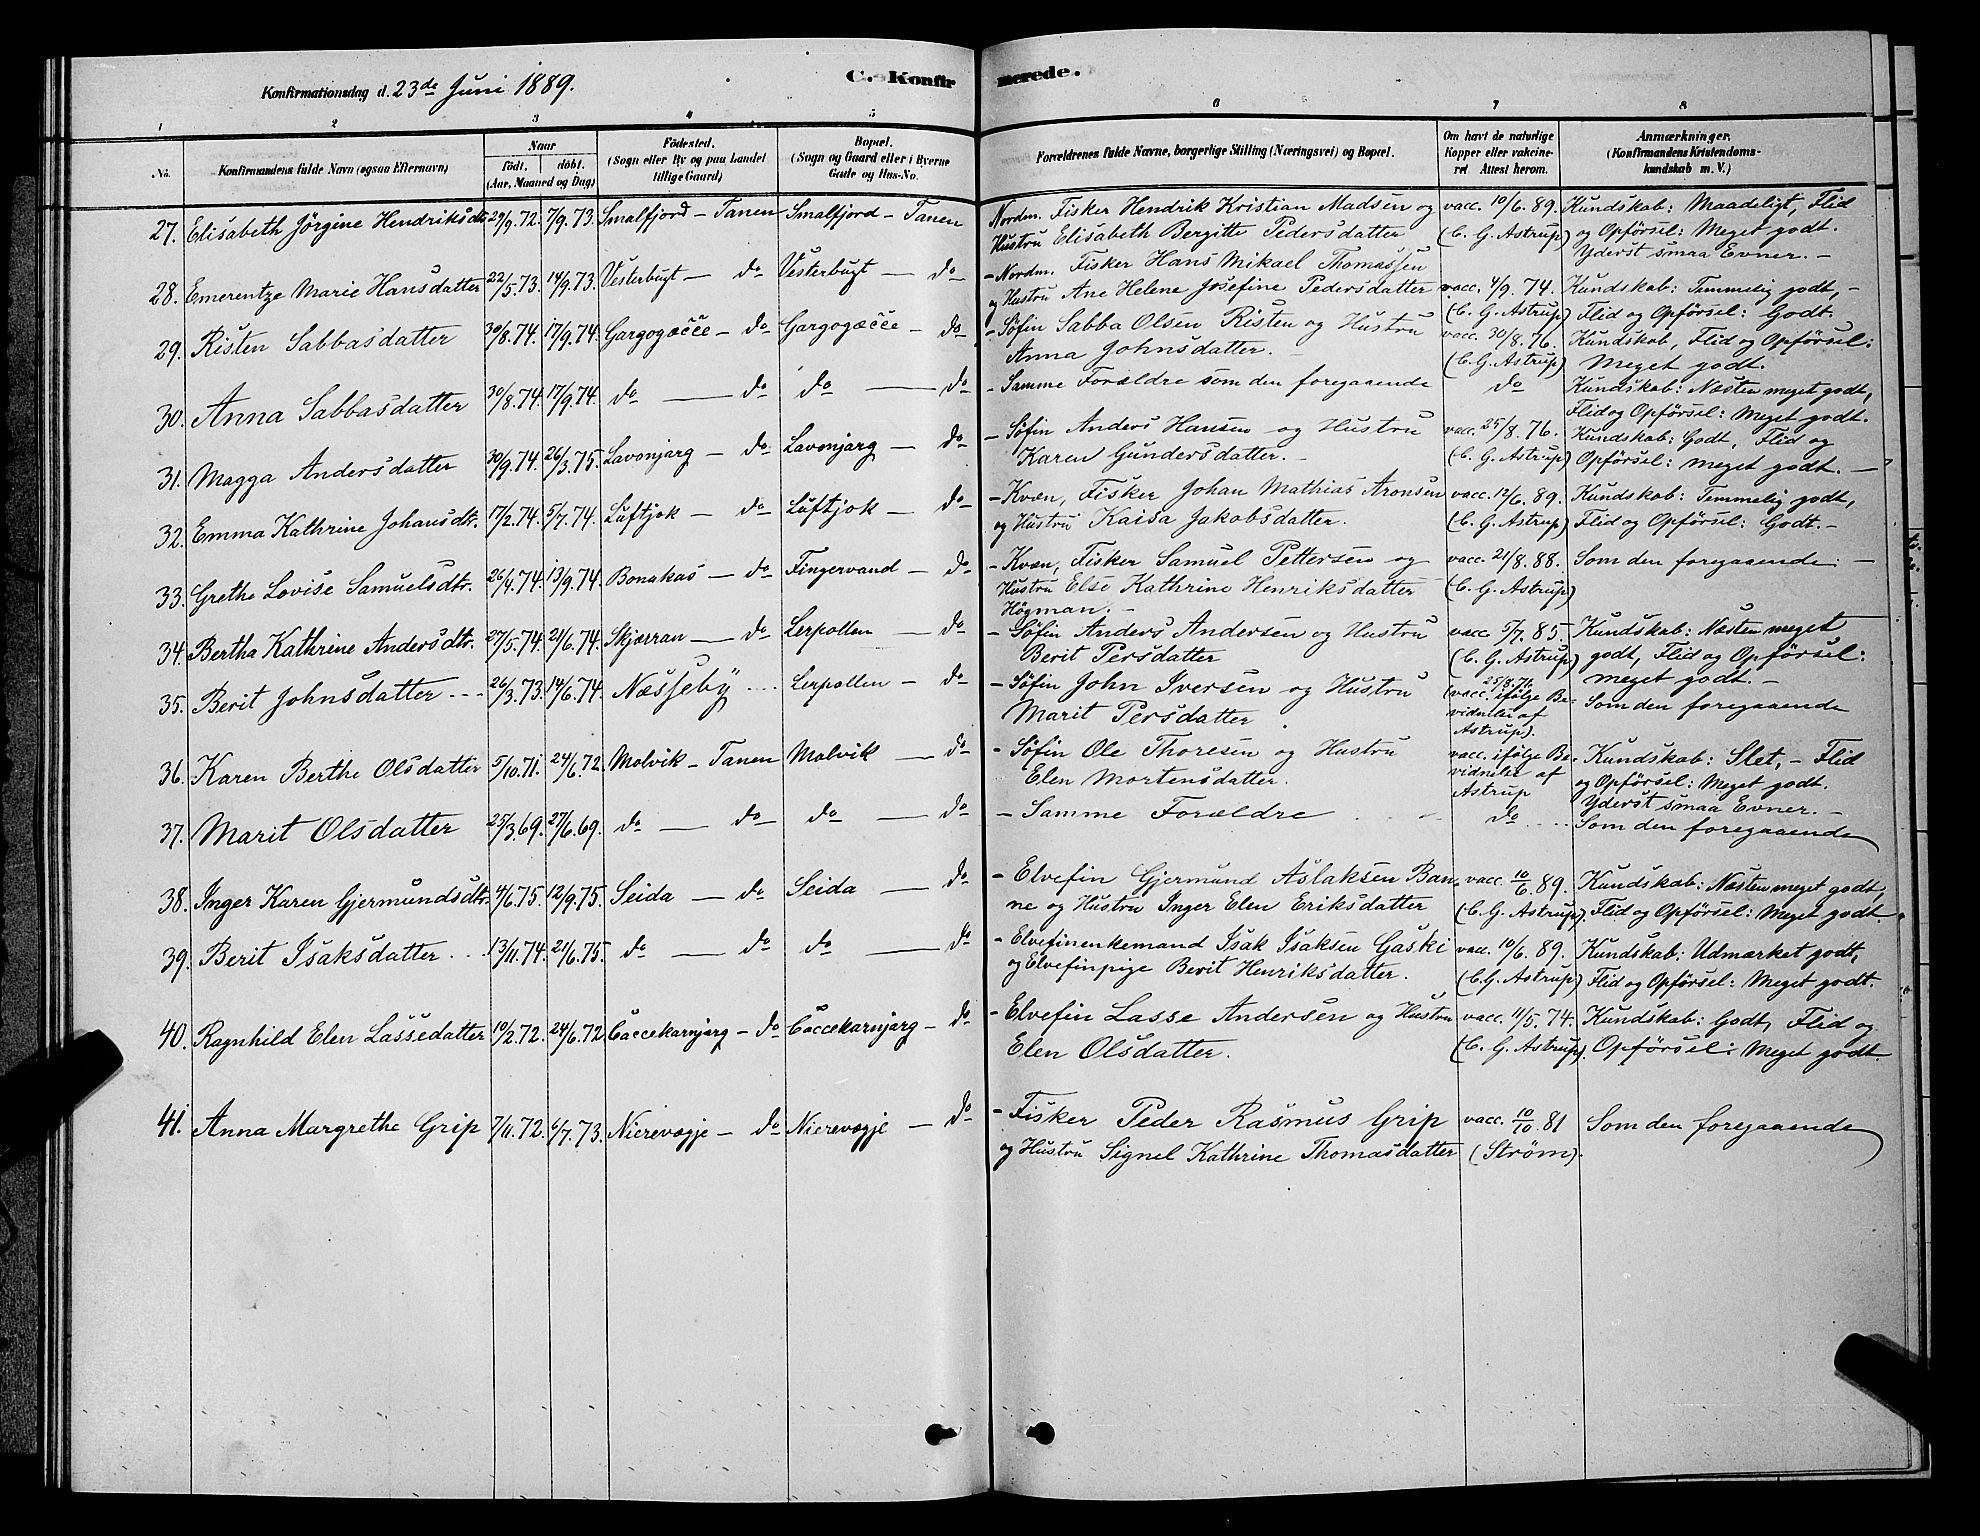 Konfirmationsdag d. 23de Juni 1889.
C. Konfirmerede.
1 2 3 4 5 6 7 8
No. Konfirmandens fulde Navn (ogsaa Efternavn) Naar født. døbt. (Aar, Maaned og Dag) Fødested. (Sogn eller By og paa Landet tillige Gaard) Bopæl. (Sogn og Gaard eller i Byerne Gade og Hus-No. Forældrenes fulde Navne, borgerlige Stilling (Næringsvei) og Bopæl. Om havt de naturlige Kopper eller vakcineret. Attest herom. Anmærkninger. (Konfirmandens Kristendomskundskab m. V.)
27. Elisabeth Jörgine Hendriksdtr 29/9.72. 7/9.73. Smalfjord - Tanen Smalfjord - Tanen Nordm. Fisker Hendrik Kristian Madsen og vacc. 10/6.89. Kundskab: Maadeligt, Flid
Hustru Elisabeth Bergitte Pedersdatter (C. G. Astrup) og Opförsel: Meget godt.
Yderst smaa Evner. -
28. Emerentze Marie Hansdatter 22/5.73. 14/9.73. Vesterbugt - do Vesterbugt - do - Nordm. Fisker Hans Mikael Thomassen
og Hustru Ane Helene Josefine Pedersdatter vacc. 4/9.74. Kundskab: Temmelig godt, -
(C. G. Astrup) Flid og Opförsel: Godt.
29. Risten Sabbasdatter 30/8.74. 17/9.74. Gargogæcce - do Gargogæcce - do - Söfin Sabba Olsen Risten og Hustru vacc. 30/8.76. Kundskab, Flid og Opförsel:
Anna Johnsdatter. - (C. G. Astrup) Meget godt.
30. Anna Sabbasdatter 30/8.74. 17/9.74. do - do do - do - Samme Forældre som den foregaaende do Kundskab: Næsten meget godt,
Flid og Opförsel: Meget godt.
31. Magga Andersdatter 30/9.74. 26/3.75. Lavonjarg - do Lavonjarg - do - Söfin Anders Hansen og Hustru vacc. 25/8.76. Kundskab: Godt, Flid og
Karen Gundersdatter. - (C. G. Astrup) Opförsel: meget godt. -
32. Emma Kathrine Johansdtr. 17/2.74. 5/7.74. Luftjok - do Luftjok - do - Kvæn, Fisker Johan Mathias Aronsen vacc. 12/6.89. Kundskab: Temmelig godt,
og Hustru Kaisa Jakobsdatter. (C. G. Astrup) Flid og Opförsel: Godt. -
33. Grethe Lovise Samuelsdtr. 26/4.74. 13/9.74. Bonakas - do Fingervand - do - Kvæn, Fisker Samuel Pettersen og vacc. 21/8.88. Som den foregaaende: -
Hustru Else Kathrine Henriksdatter (C. G. Astrup)
Högman. -
34. Bertha Kathrine Andersdtr. 27/5.74. 21/6.74. Skjærran - do Lerpollen - do - Söfin Anders Andersen og Hustru vacc. 5/7.85. Kundskab: Næsten meget
Berit Persdatter (C. G. Astrup) godt, Flid og Opförsel:
meget godt. -
35. Berit Johnsdatter - - - 26/3.73. 14/6.74. Næsseby .... Lerpollen - do - Söfin John Iversen og Hustru 25/8.76 (vacc. ifölge Be- Som den foregaaende
Marit Persdatter. vidnelse af
Astrup).
36. Karen Berthe Olsdatter 5/10.71. 24/6.72. Molvik - Tanen Molvik - do - Söfin Ole Thoresen og Hustru vacc. ifölge Be- Kundskab: Slet, - Flid
Elen Mortensdatter. vidnelse af og Opförsel: Meget godt.
Astrup Yderst smaa Evner. -
37. Marit Olsdatter 25/3.69. 27/6.69. do - do do - do - Samme Forældre do Som den foregaaende
38. Inger Karen Gjermundsdtr. 4/6.75. 12/9.75. Seida - do Seida - do - Elvefin Gjermund Aslaksen Ban- vacc. 10/6.89. Kundskab: Næsten meget godt,
ne og Hustru Inger Elen Eriksdatter (C. G. Astrup). Flid og Opförsel: Meget godt.
39. Berit Isaksdatter .... 13/11.74. 21/6.75. do - do do - do - Elvefinenkemand Isak Isaksen Gaski vacc. 10/6.89. Kundskab: Udmærket godt,
og Elvefinpige Berit Henriksdatter. (C. G. Astrup) Flid og Opförsel: Meget godt.
40. Ragnhild Elen Lassedatter 10/2.72. 24/6.72 Caccekarnjarg - do Caccekarnjarg - do - Elvefin Lasse Andersen og Hustru vacc. 11/5.74. Kundskab: Godt, Flid og
Elen Olsdatter. (C. G. Astrup). Opförsel: Meget godt.
41. Anna Margrethe Grip 7/11.72. 6/7.73. Nierevogje - do Nierevogje - do - Fisker Peder Rasmus Grip vacc. 10/10.81 Som den foregaaende
og Hustru Signel Kathrine Thomasdatter (Ström).